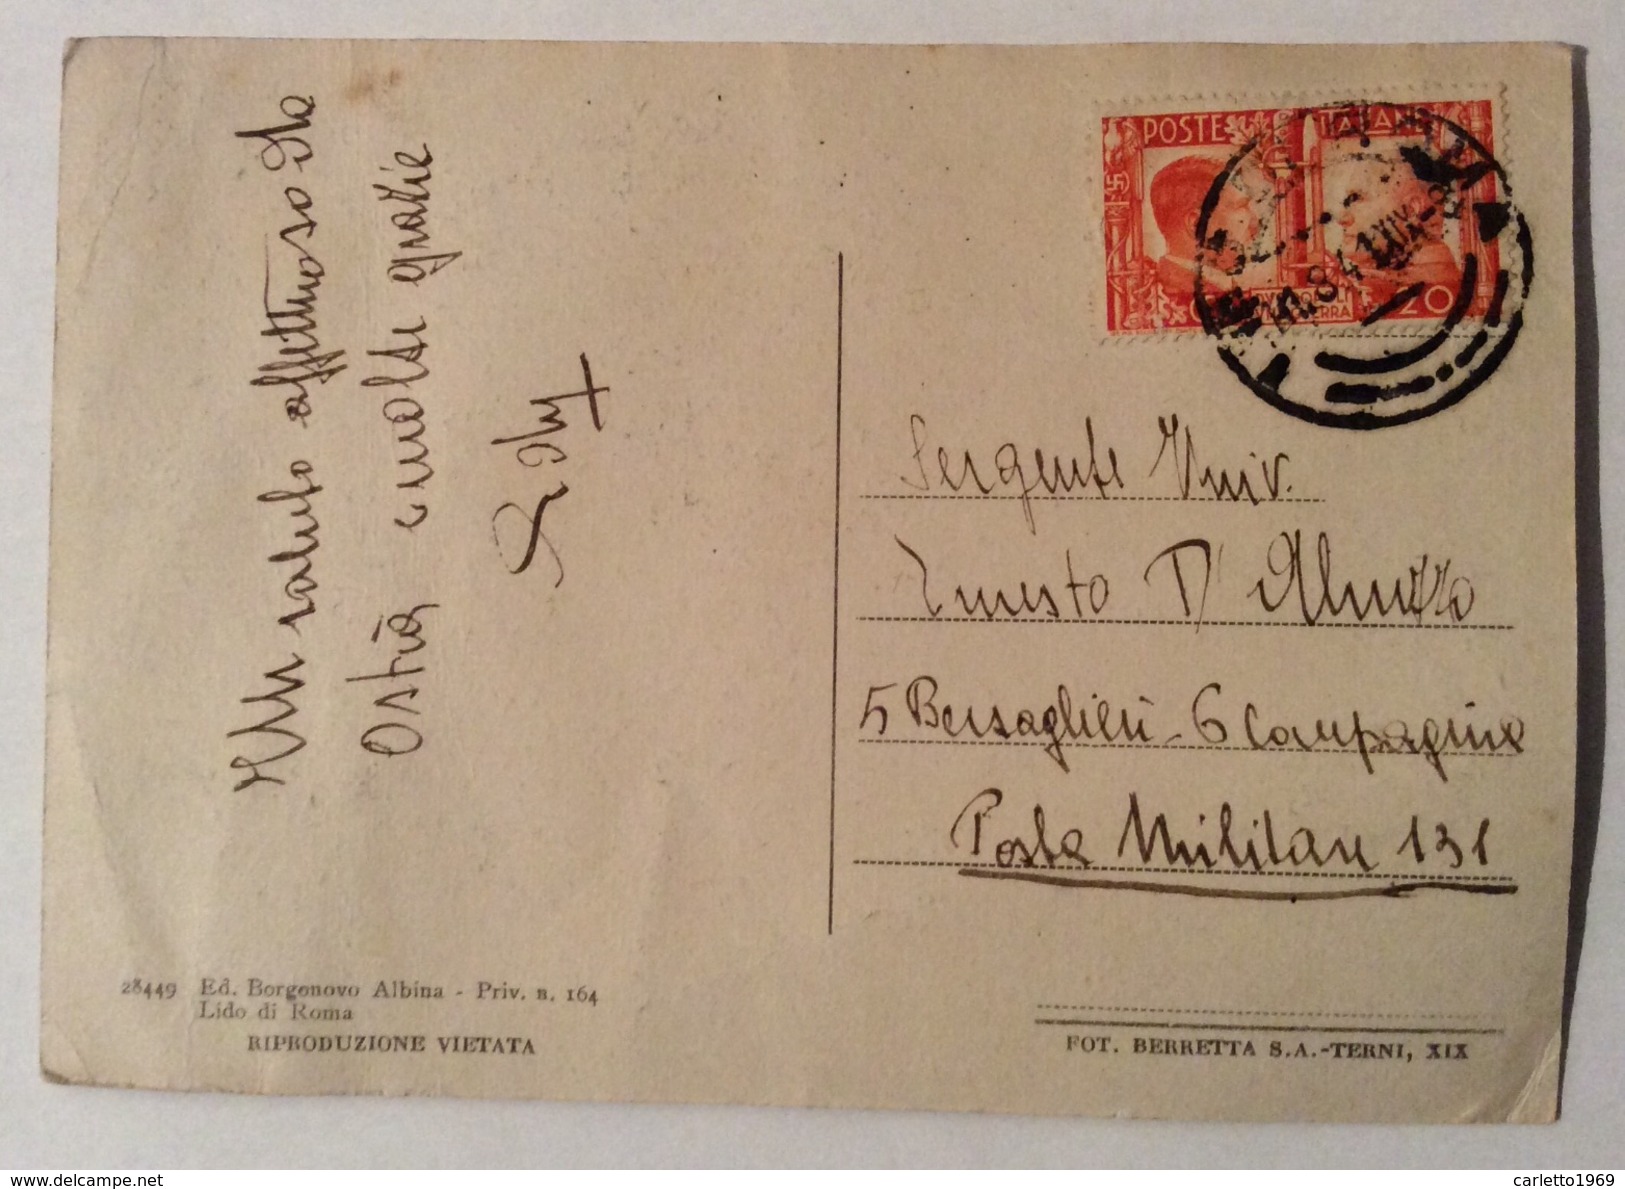 Un saluto affettuoso da
Ostia e molte grazie
POSTE ITALIANE
20
Sergente Univ.
Ernesto D'
5 Bersaglieri - 6 Compagnia
Posta Militare 131
28449 Ed. Borgonovo Albina - Priv. n. 164
Lido di Roma
RIPRODUZIONE VIETATA
FOT. BERRETTA S.A.-TERNI, XIX
delcampe.net
carletto1969